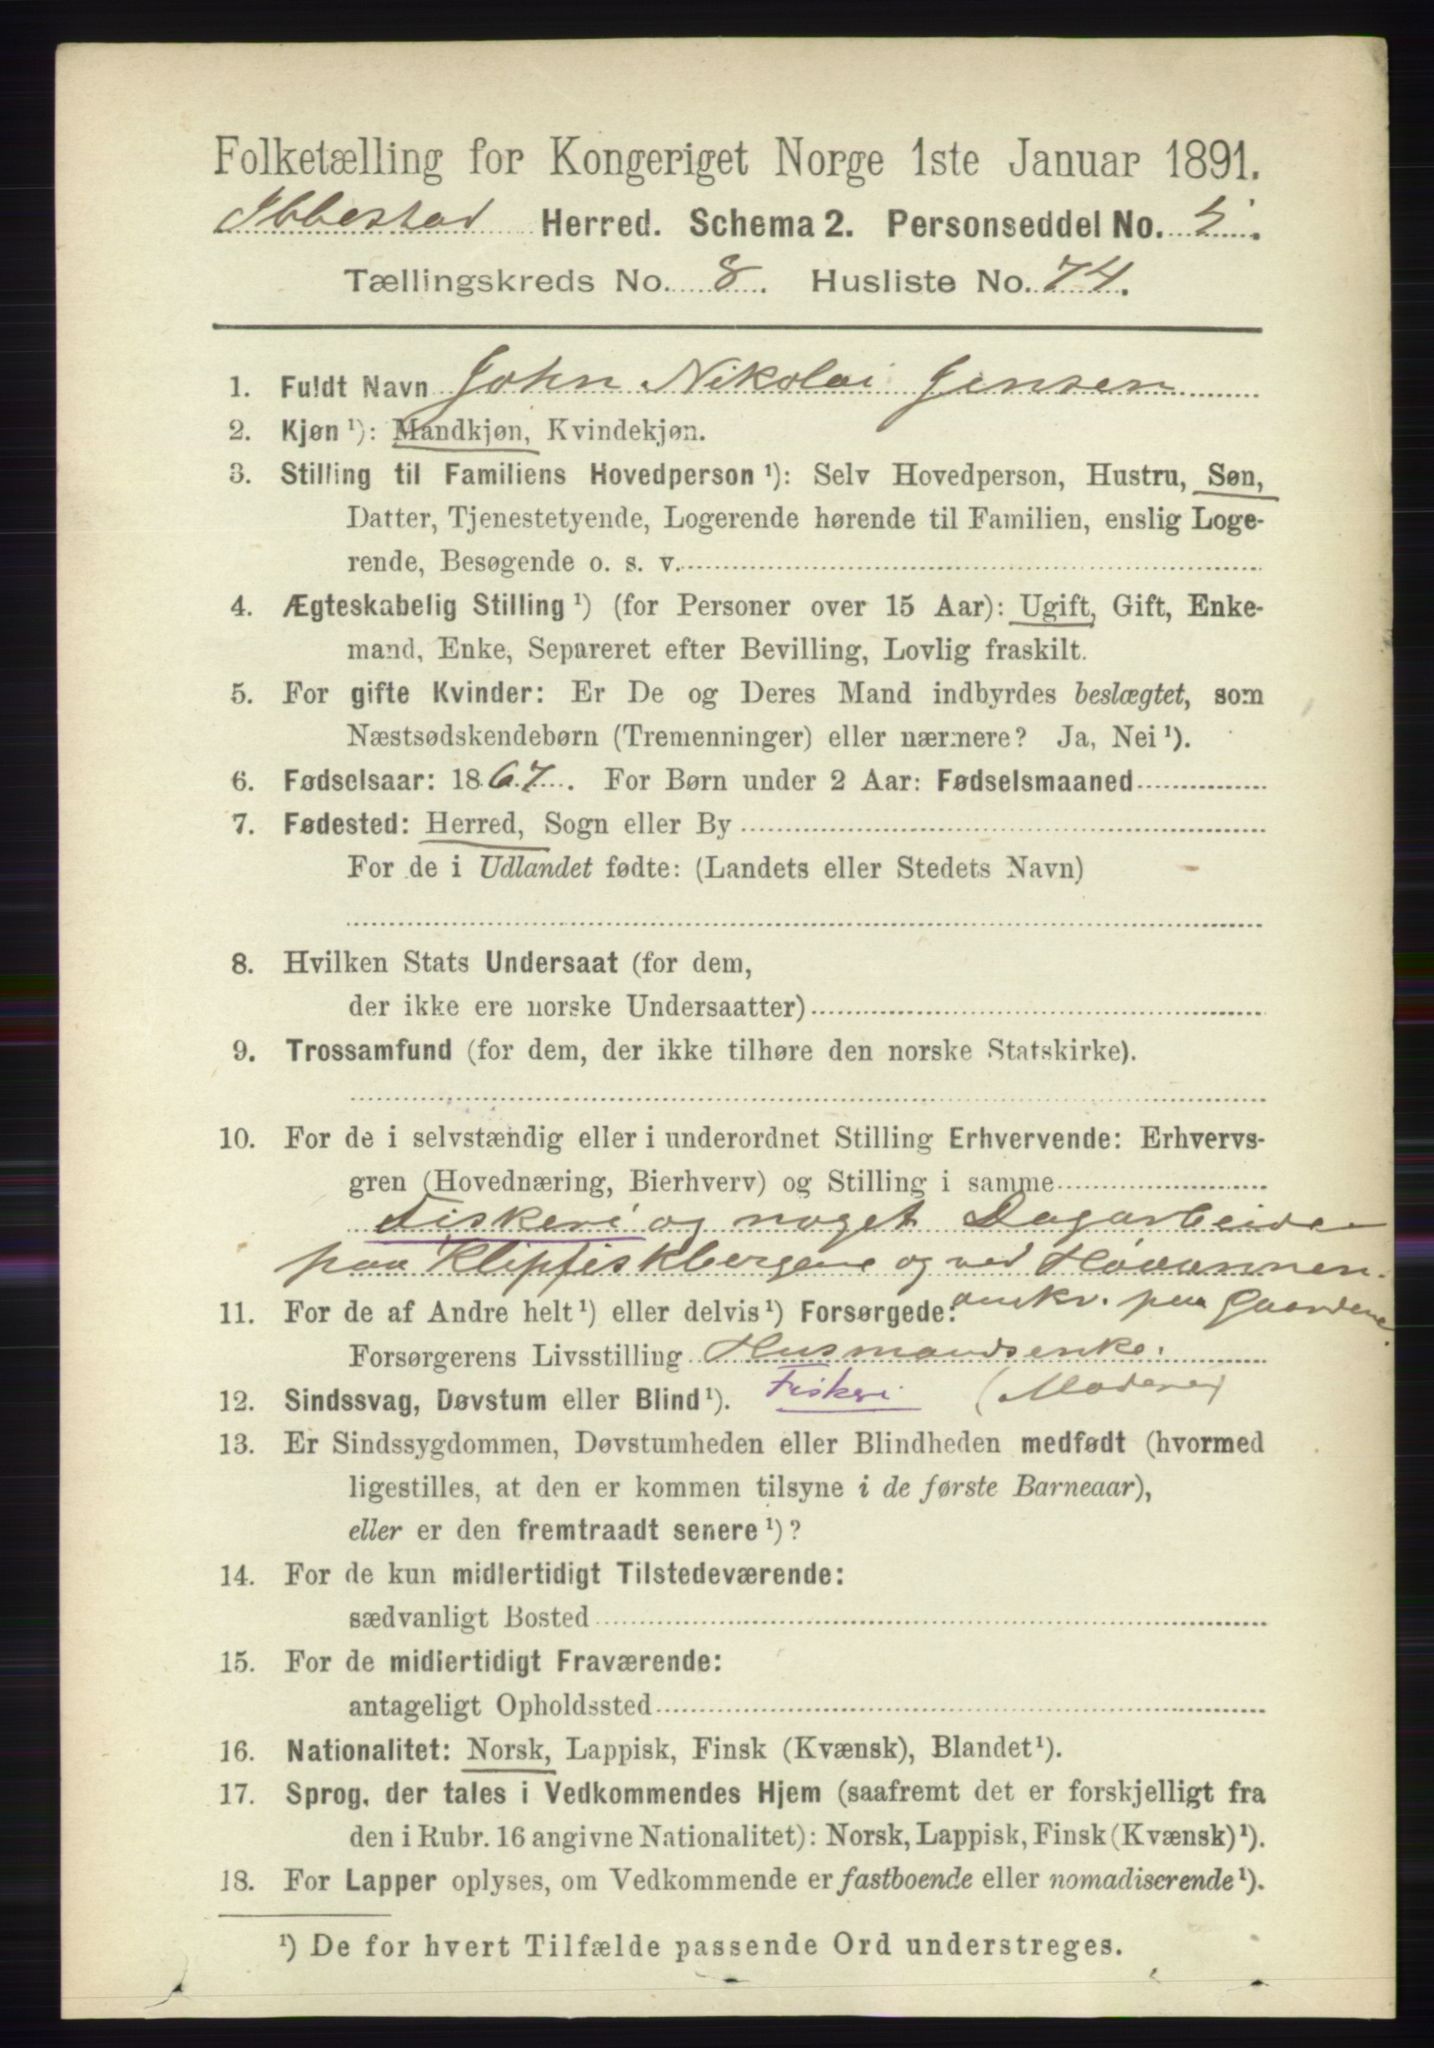 Folketælling for Kongeriget Norge 1ste Januar 1891.
Ibbestad Herred. Schema 2. Personseddel No. 5.
Tællingskreds No. 8. Husliste No. 74.
1. Fuldt Navn John Nikolai Jensen
2. Kjøn ¹): Mandkjøn, Kvindekjøn.
3. Stilling til Familiens Hovedperson ¹): Selv Hovedperson, Hustru, Søn,
Datter, Tjenestetyende, Logerende hørende til Familien, enslig Loge-
rende, Besøgende o. s. v.
4. Ægteskabelig Stilling ¹) (for Personer over 15 Aar): Ugift, Gift, Enke-
mand, Enke, Separeret efter Bevilling, Lovlig fraskilt.
5. For gifte Kvinder: Er De og Deres Mand indbyrdes beslægtet, som
Næstsødskendebørn (Tremenninger) eller nærmere? Ja, Nei ¹).
6. Fødselsaar: 1867. For Børn under 2 Aar: Fødselsmaaned
7. Fødested: Herred, Sogn eller By
For de i Udlandet fødte: (Landets eller Stedets Navn)
8. Hvilken Stats Undersaat (for dem,
der ikke ere norske Undersaatter)
9. Trossamfund (for dem, der ikke tilhøre den norske Statskirke).
10. For de i selvstændig eller i underordnet Stilling Erhvervende: Erhvervs-
gren (Hovednæring, Bierhverv) og Stilling i samme
Fiskeri og noget Dagarbeide
paa Klipfiskbergene og ved Høaannen.
paa Gaardene.
11. For de af Andre helt ¹) eller delvis ¹) Forsørgede:
Forsørgerens Livsstilling Husmandsenke.
12. Sindssvag, Døvstum eller Blind ¹). Fiskeri (Moderen)
13. Er Sindssygdommen, Døvstumheden eller Blindheden medfødt (hvormed
ligestilles, at den er kommen tilsyne i de første Barneaar),
eller er den fremtraadt senere ¹)?
14. For de kun midlertidigt Tilstedeværende:
sædvanligt Bosted
15. For de midlertidigt Fraværende:
antageligt Opholdssted
16. Nationalitet: Norsk, Lappisk, Finsk (Kvænsk), Blandet ¹).
17. Sprog, der tales i Vedkommendes Hjem (saafremt det er forskjelligt fra
den i Rubr. 16 angivne Nationalitet): Norsk, Lappisk, Finsk (Kvænsk) ¹).
18. For Lapper oplyses, om Vedkommende er fastboende eller nomadiserende ¹).
¹) De for hvert Tilfælde passende Ord understreges.